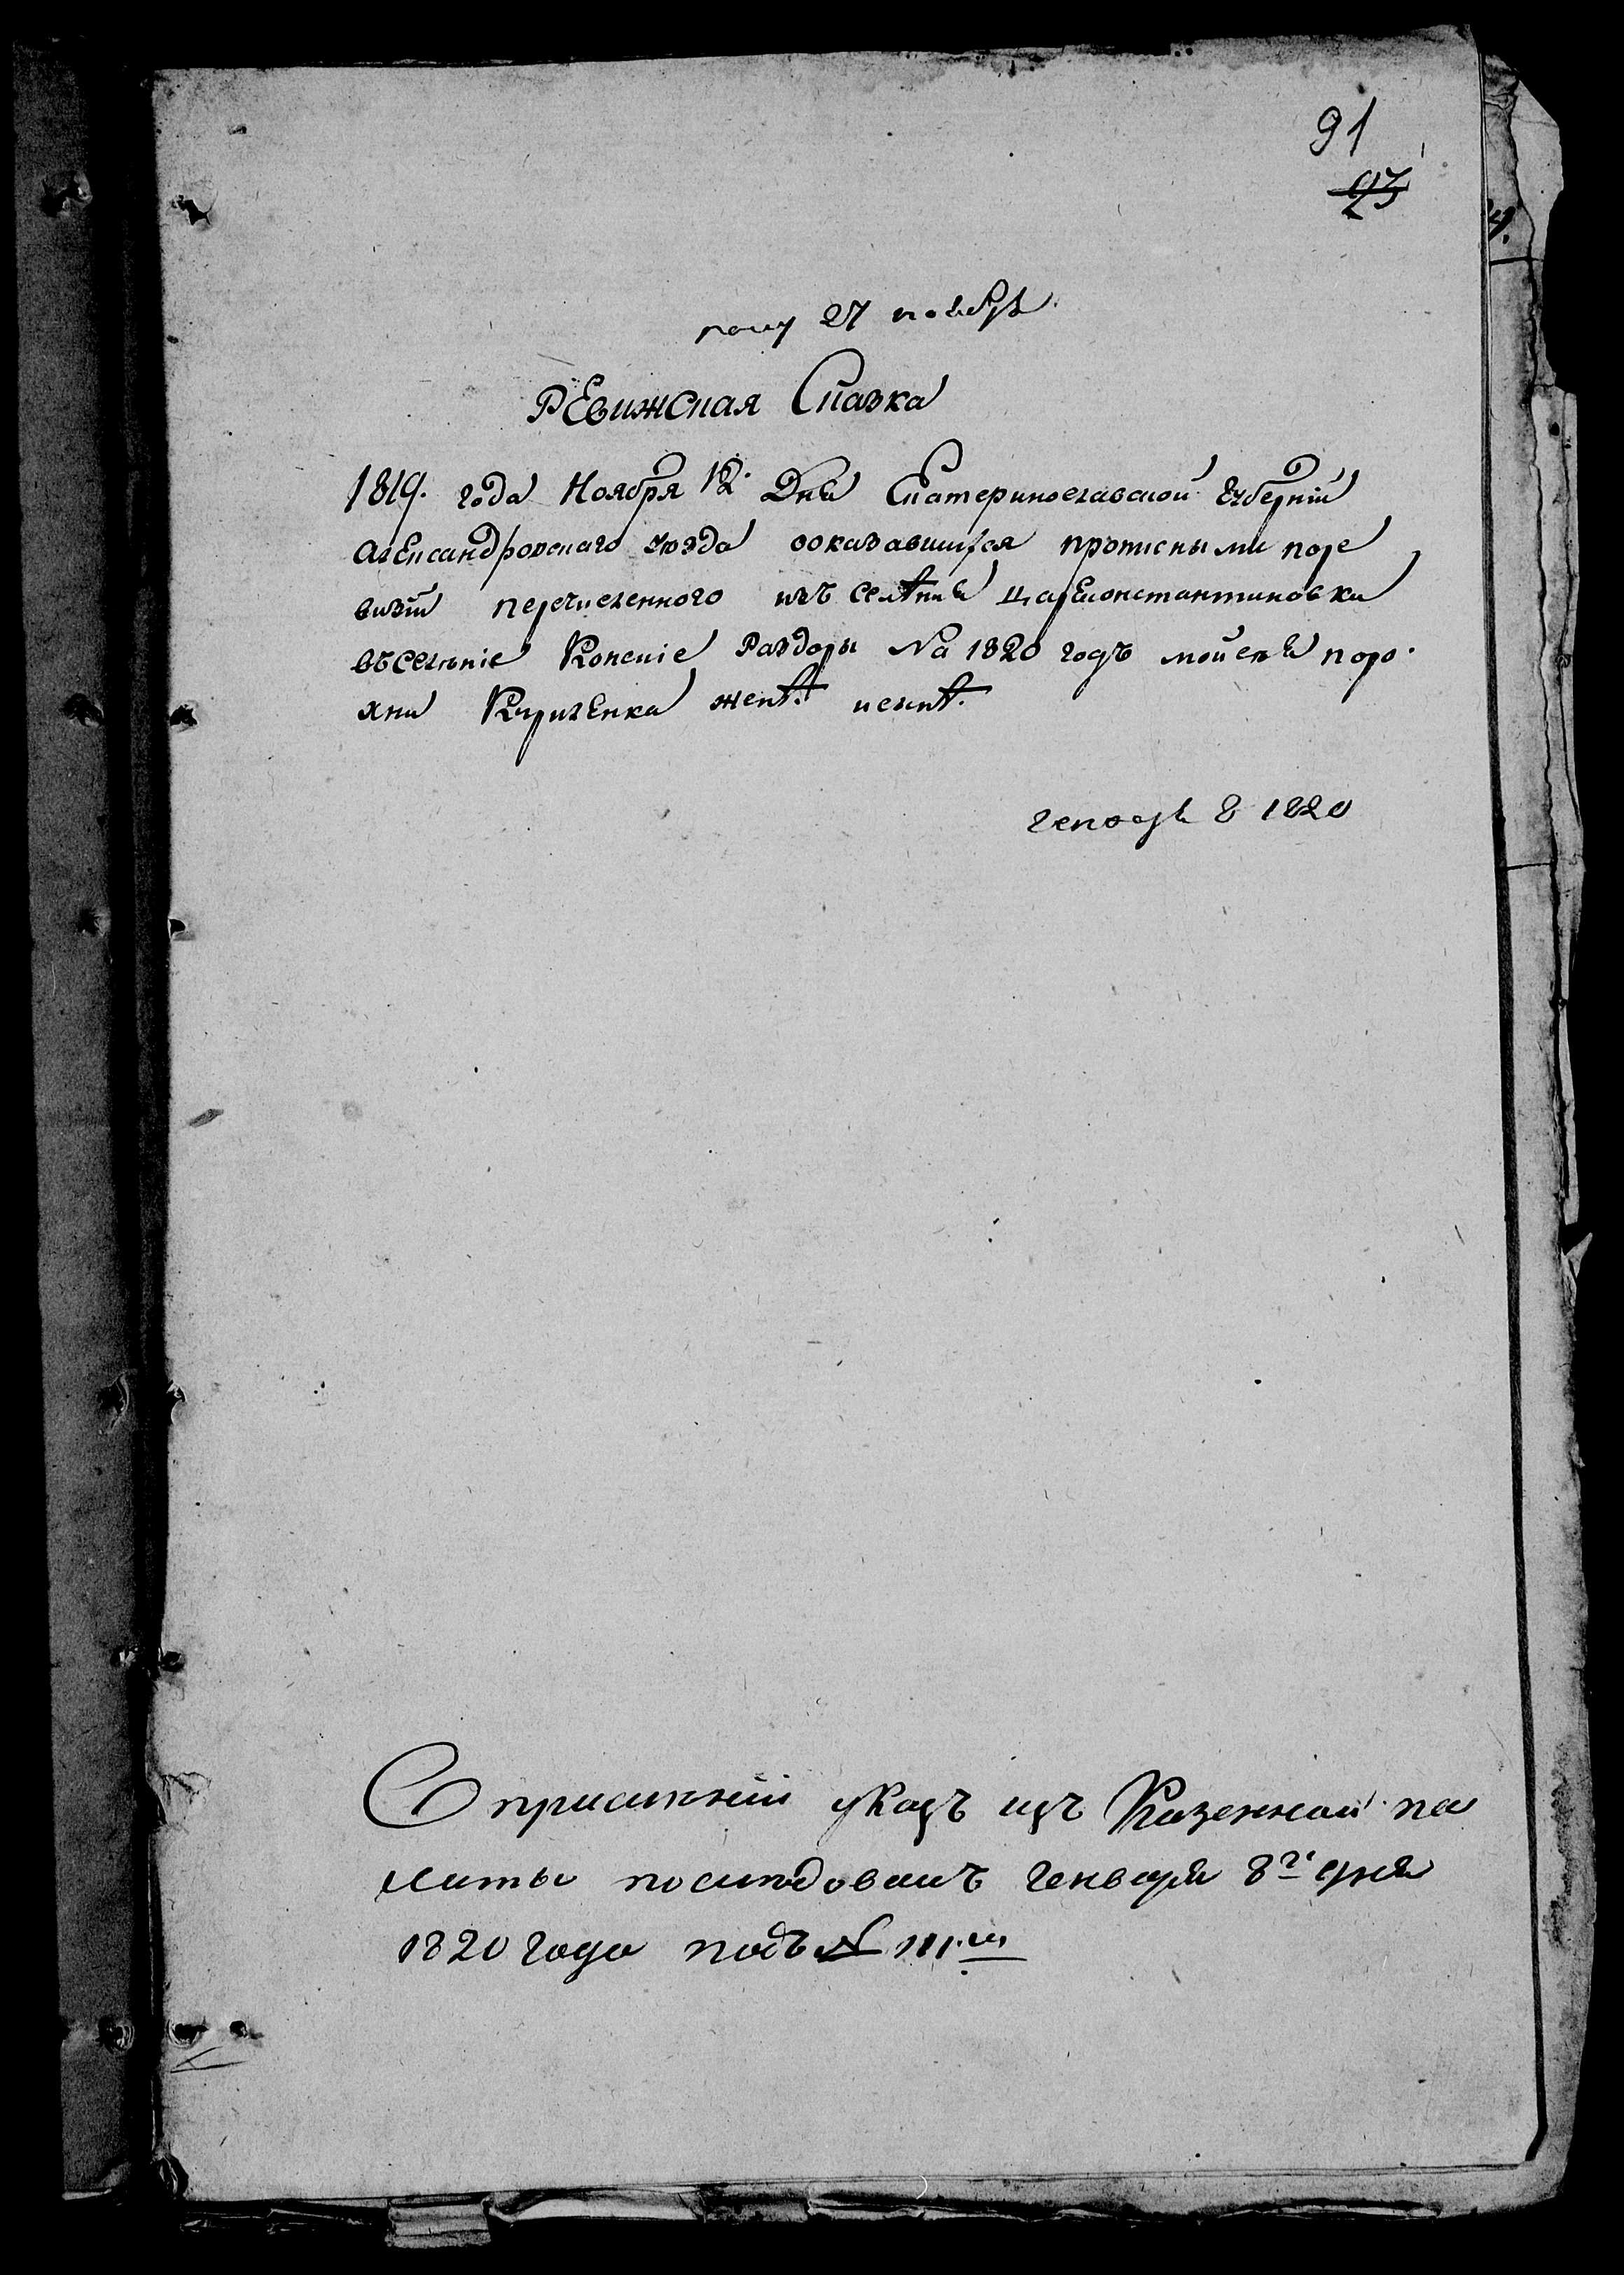 91
полу 27 ноября
Ревижская Сказка
1819. года Ноября 12. Дня Екатеринославской Губерніи
Александровского уезда ооказавшихся прописными поре
визіи перечисленного изъ селѣния Цареконстантиновки
въ селѣніе Конскіе Раздоры На 1820 годъ мойсея поро
хни Кириченка женѣ. и
генваря 8 1820
О причисленіи указъ изъ Казенной па
латы последовалъ генваря 8го дня
1820 года подъ № 111.м